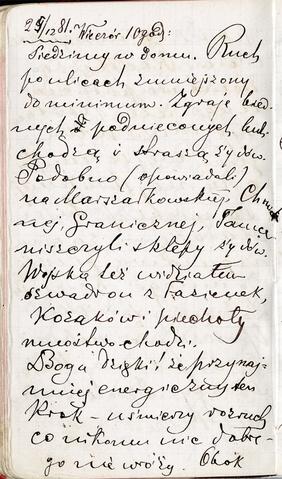 29/12 81. Wieczór 10 god:
Siedzimy w domu. Ruch
po ulicach zmniejszony
do minimum. Zgraje bied-
nych podnieconych ludzi
chodzą i straszą żydów.
Podobno (opowiadali)
na Marszałkowskiej, Chmiel
nej, Granicznej,
niszczyli sklepy żydów.
Wojska też widziałem
szwadron z Łazienek,
Kozaków i piechoty
mnóstwo chodzi.
Bogu dzięki! że przynaj-
mniej energiczny ten
Krok – uśmierzy rozruch
co nikomu nic dobre-
go nie wróży. Obok